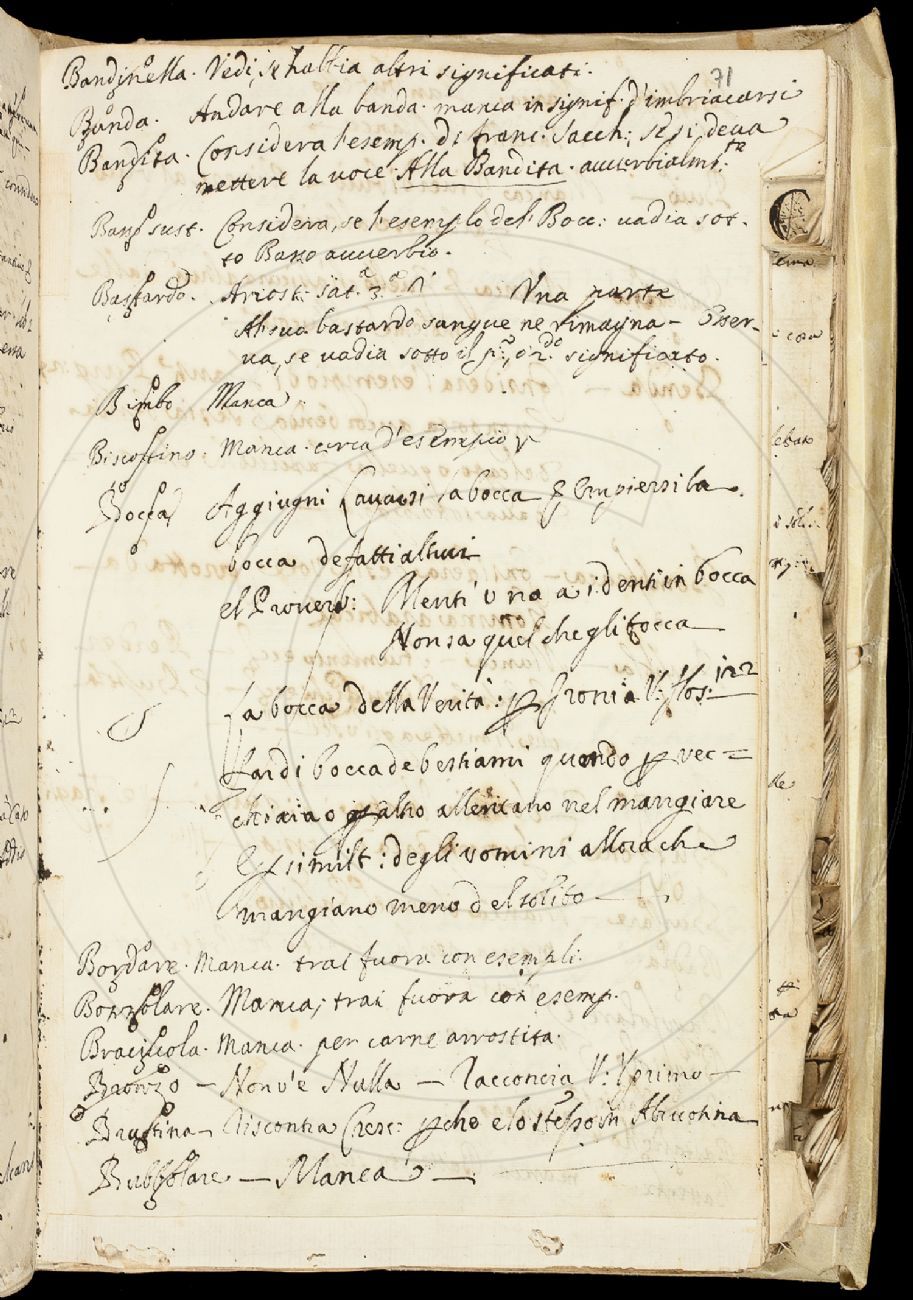 71
Bandinella. Vedi, se habbia altri significati.
Banda. Andare alla banda. manca in signif. d'imbriacarsi
Bandita. Considera l'esemp. di Franc. Sacch: se si deva
mettere la voce Alla Bandita. avverbialm.te
sust. Considera, se l'esemplo del Bocc: vadia sot-
to avverbio.
Bastardo. Ariost. Sat.ª 3.ª Una parte
Al suo bastardo sangue ne rimagna - Osser-
va, se vadia sotto il p.º, o 2.do significato.
Bimbo Manca
Biscottino. Manca. cerca d'esempio
Bocca Aggiugni Cavarsi la bocca Empiersi la
bocca de fatti altrui
e l Proverb: Menti una a i denti in bocca
Non sa quel che gli tocca
La bocca della Verità: p Ironia V:
bocca de bestiami quando p vec=
chiaia o p altro allentano nel mangiare
E p similt: degli uomini allora che
mangiano meno del solito
Manca. trai fuora con esempli.
Manca, trai fuora con esemp.
Bracicola. Manca. per carne arrostita.
Bronzo - Non v'è Nulla - Racconcia V: V primo -
Brustina - Riscontra Cresc: p che e lo stesso
Manca